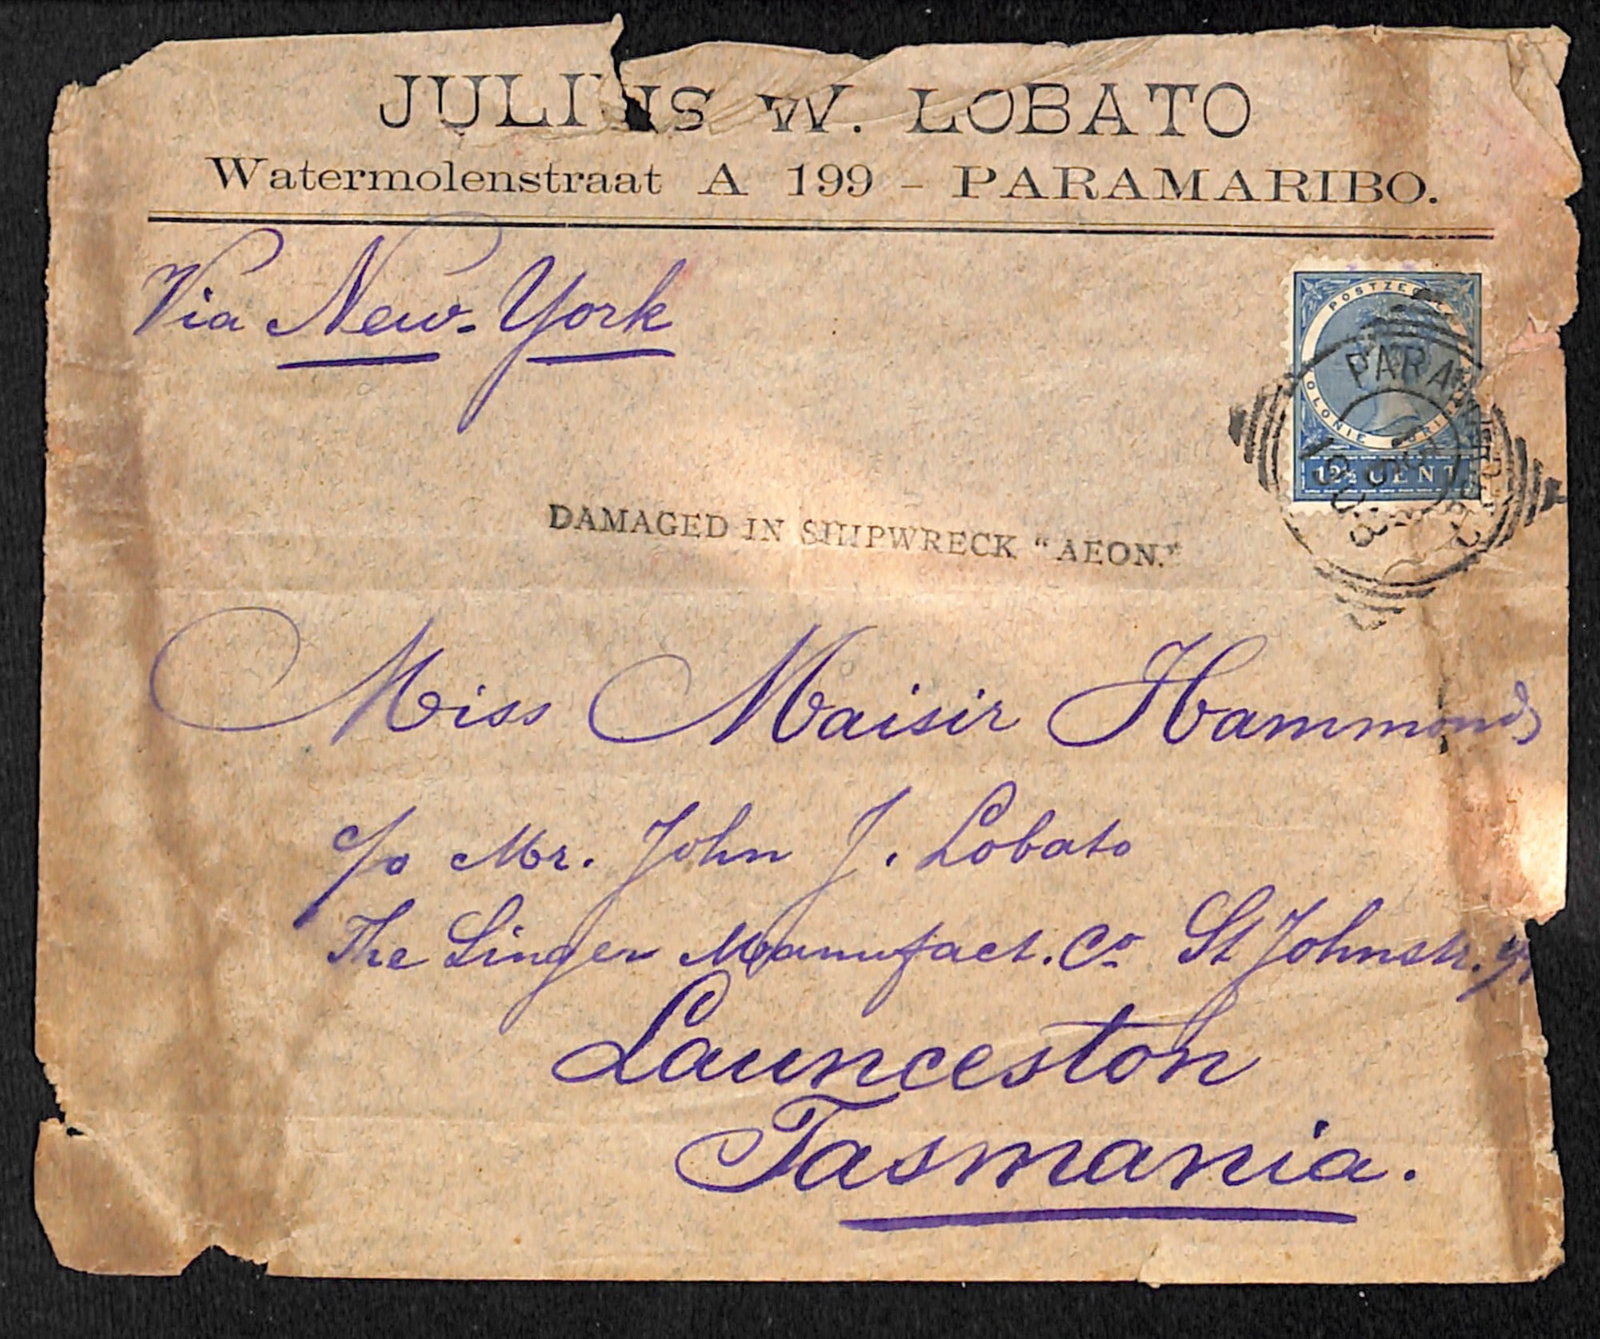 JULIUS W. LOBATO
Watermolenstraat A 199 - PARAMARIBO.
Via New-York
POSTZEGEL
KOLONIE SURINAME
12½ CENT
PARAMARIBO
1908
DAMAGED IN SHIPWRECK "AEON."
Miss Maisir Hammonds
c/o Mr. John J. Lobato
The Singer Manufact. Co. St Johnstr.
Launceston
Tasmania.